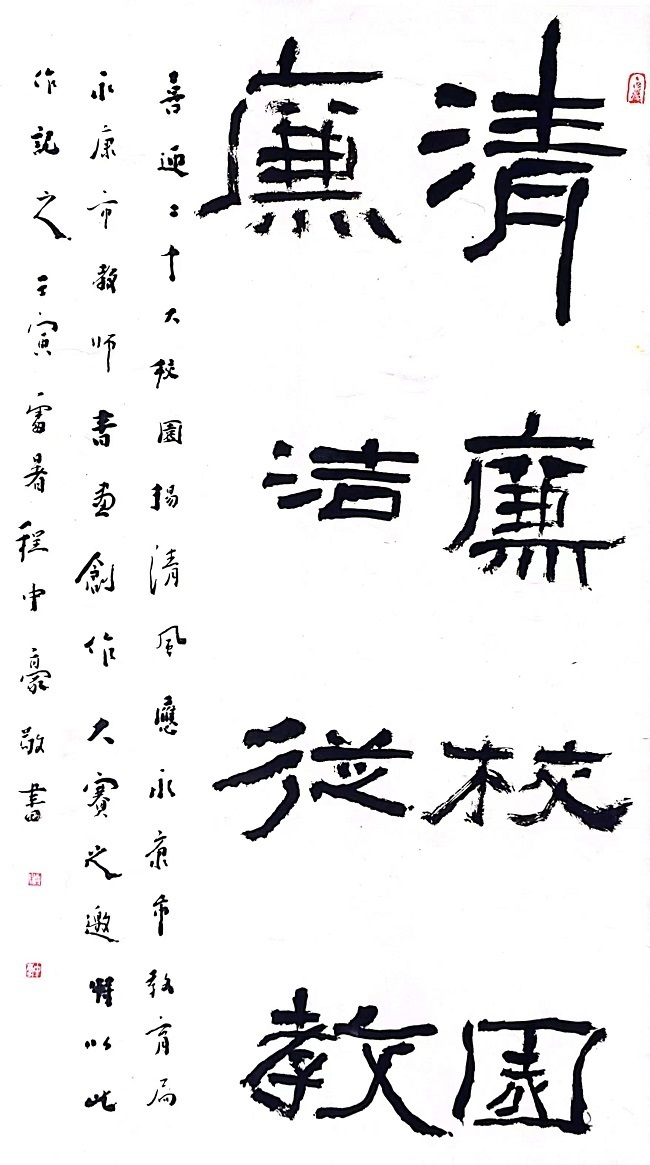 清廉校園
廉洁從教
喜迎二十大校園揚清風應永康市教育局
永康市教師書畫創作大賽之邀惟以此
作記之壬寅處暑程中豪敬書